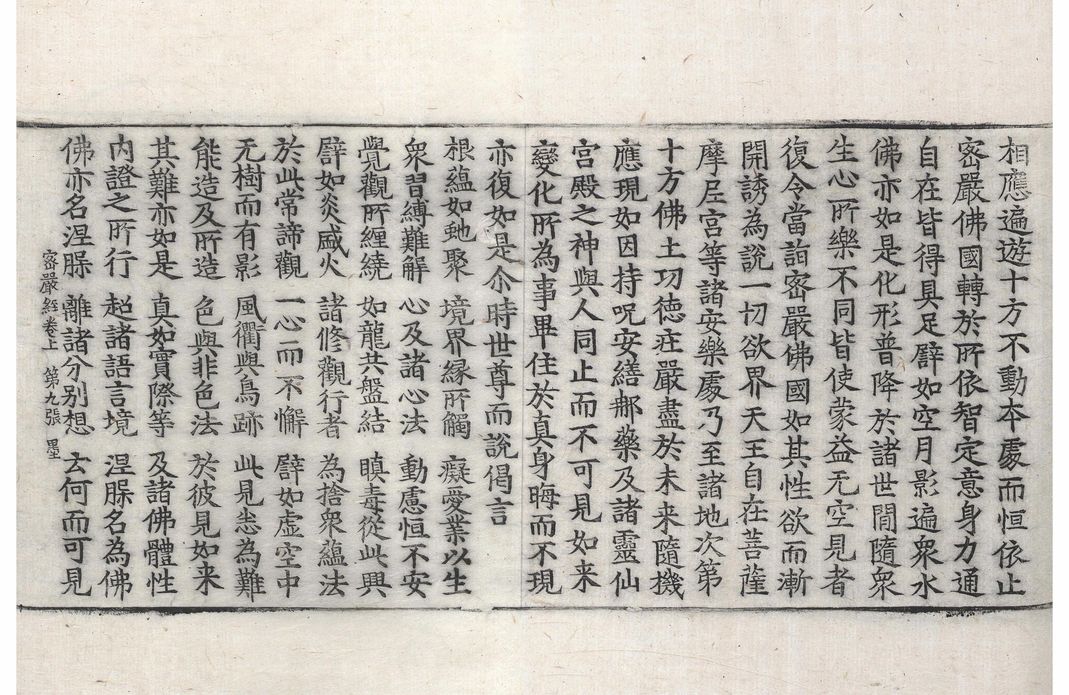 相應遍遊十方不動本處而恒依止
密嚴佛國轉於所依智定意身力通
自在皆得具足譬如空月影遍衆水
佛亦如是化形普降於諸世間隨衆
生心所樂不同皆使蒙益无空見者
復令當詣密嚴佛國如其性欲而漸
開誘為說一切欲界天王自在菩薩
摩尼宮等諸安樂處乃至諸地次第
十方佛土功德㽵嚴盡於未来隨機
應現如因持呪安繕那藥及諸靈仙
宮殿之神與人同止而不可見如来
變化所為事畢住於真身晦而不現
亦復如是尒時世尊而說偈言
根蘊如虵聚 境界緣所觸 癡愛業以生
衆習縛難解 心及諸心法 動慮恒不安
覺觀所纏繞 如龍共盤結 瞋毒從此興
譬如炎盛火 諸修觀行者 為捨衆蘊法
於此常諦觀 一心而不懈 譬如虛空中
无樹而有影 風衢與鳥跡 此見悉為難
能造及所造 色與非色法 於彼見如来
其難亦如是 真如實際等 及諸佛體性
內證之所行 超諸語言境 涅𣅜名為佛
佛亦名涅𣅜 離諸分別想 云何而可見
密嚴經卷上 第九張 墨